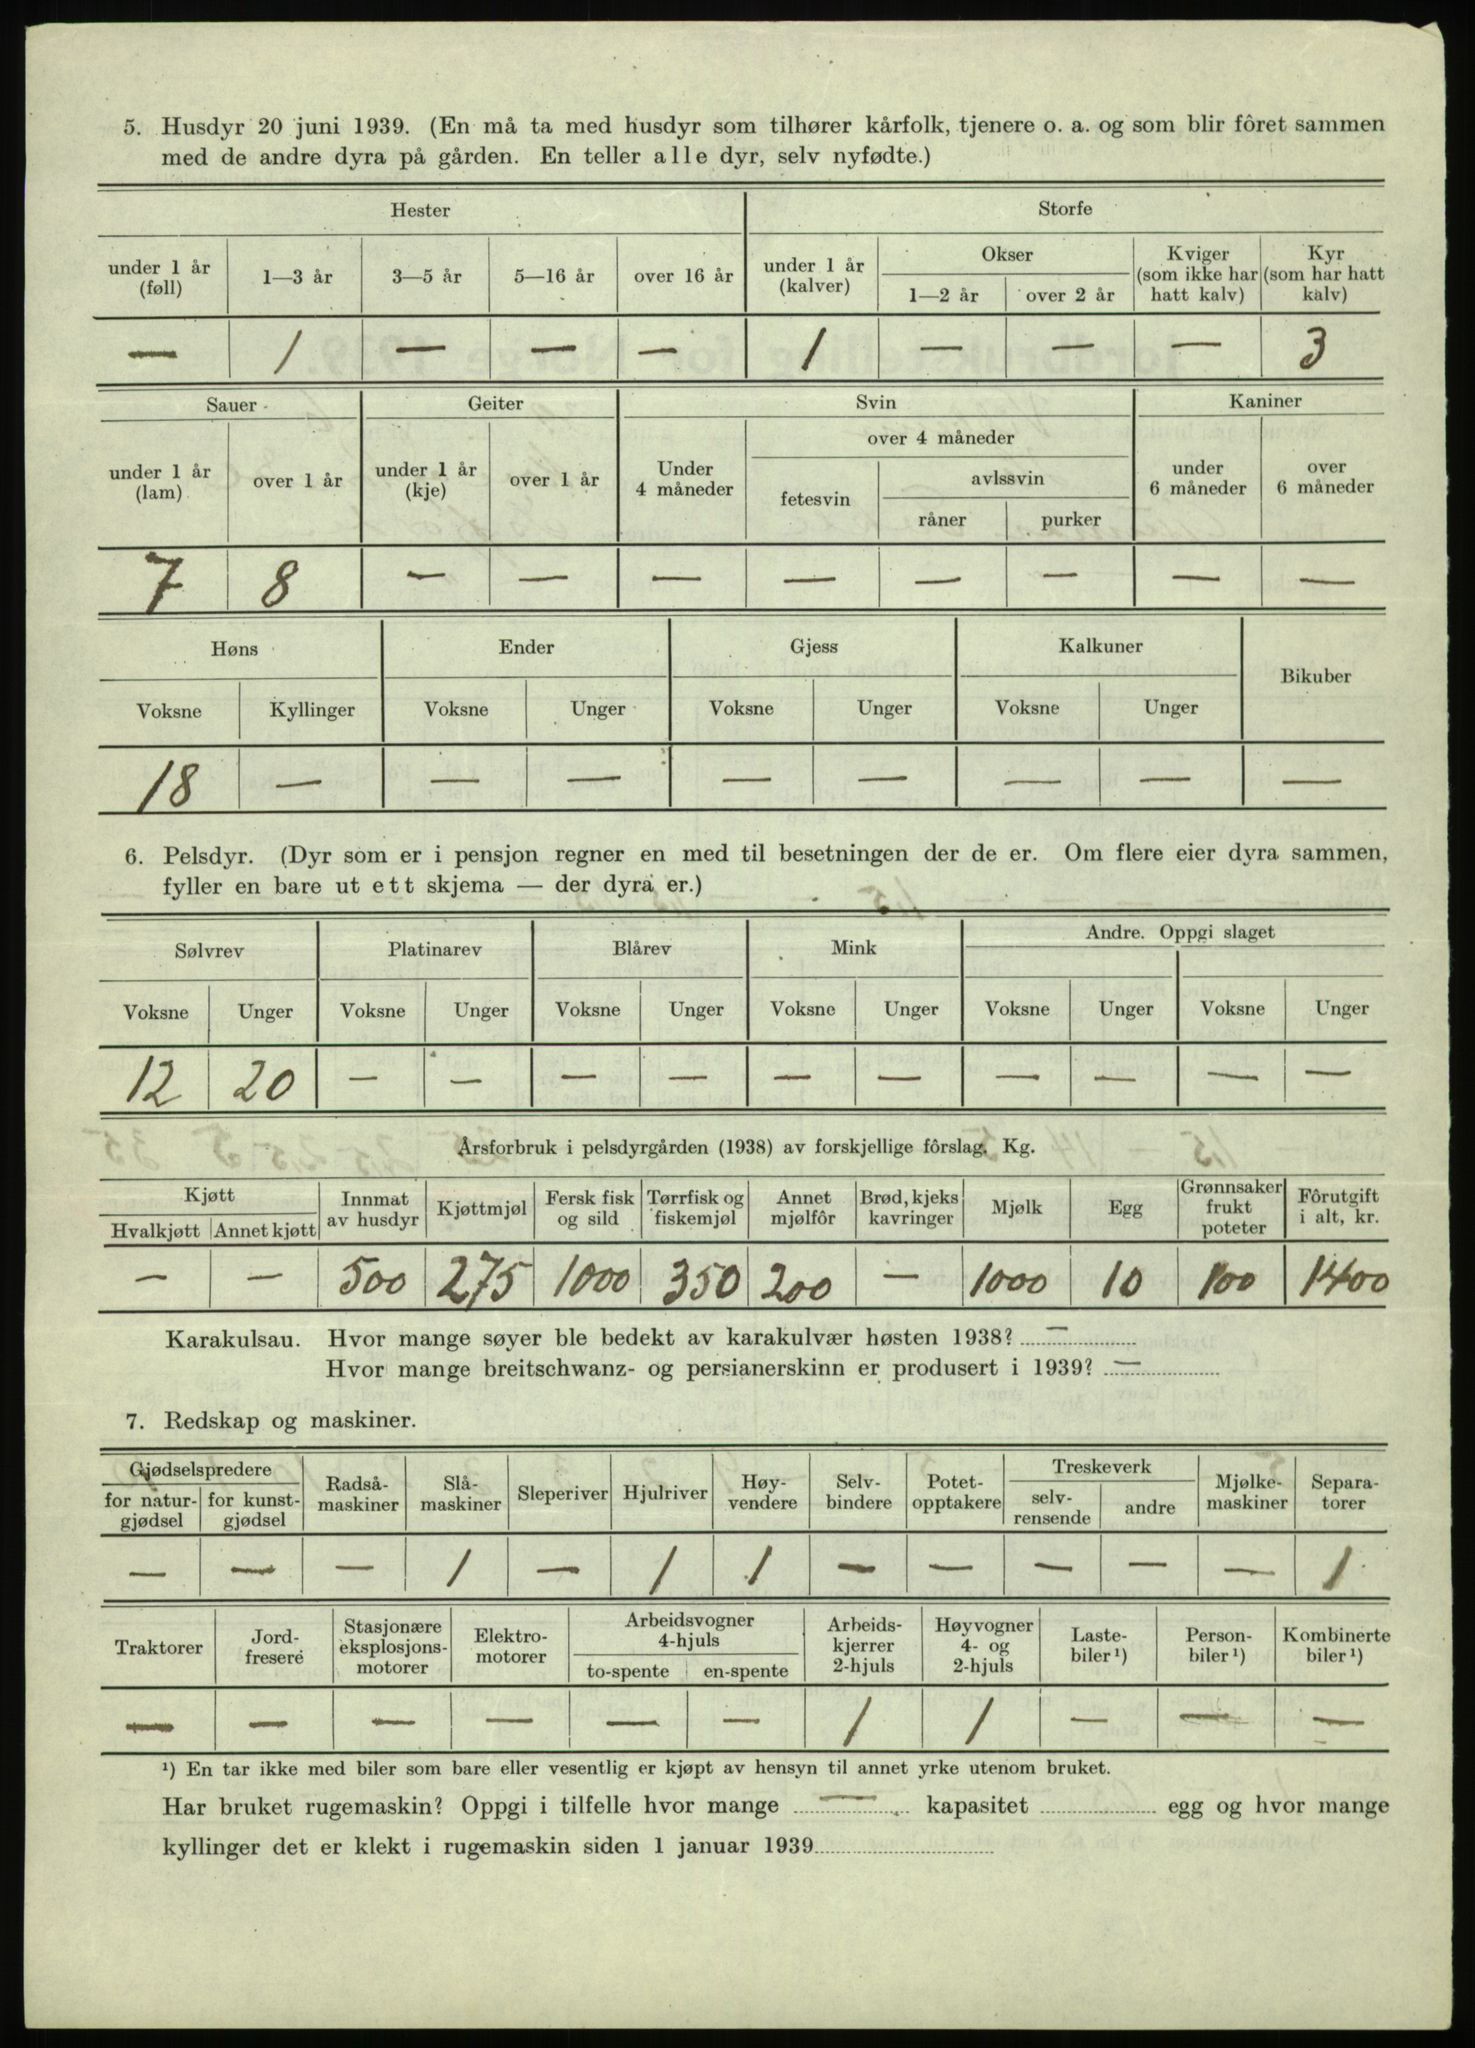 5. Husdyr 20 juni 1939. (En må ta med husdyr som tilhører kårfolk, tjenere o. a. og som blir fôret sammen
med de andre dyra på gården. En teller alle dyr, selv nyfødte.)
Hester Storfe
under 1 år (føll) 1—3 år 3—5 år 5—16 år over 16 år under 1 år (kalver) Okser 1—2 år over 2 år Kviger (som ikke har hatt kalv) Kyr (som har hatt kalv)
— 1 — — — 1 — — — 3
Sauer Geiter Svin Kaniner
under 1 år (lam) over 1 år under 1 år (kje) over 1 år Under 4 måneder over 4 måneder fetesvin avlssvin råner purker under 6 måneder over 6 måneder
7 8 — — — — — — — —
Høns Ender Gjess Kalkuner Bikuber
Voksne Kyllinger Voksne Unger Voksne Unger Voksne Unger
18 — — — — — — — —
6. Pelsdyr. (Dyr som er i pensjon regner en med til besetningen der de er. Om flere eier dyra sammen,
fyller en bare ut ett skjema — der dyra er.)
Sølvrev Platinarev Blårev Mink Andre. Oppgi slaget
Voksne Unger Voksne Unger Voksne Unger Voksne Unger Voksne Unger Voksne Unger
12 20 — — — — — — — — — —
Årsforbruk i pelsdyrgården (1938) av forskjellige fôrslag. Kg.
Kjøtt Hvalkjøtt Annet kjøtt Innmat av husdyr Kjøttmjøl Fersk fisk og sild Tørrfisk og fiskemjøl Annet mjølfôr Brød, kjeks kavringer Mjølk Egg Grønnsaker frukt poteter Fôrutgift i alt, kr.
— — 500 275 1000 350 200 — 1000 10 100 1400
Karakulsau. Hvor mange søyer ble bedekt av karakulvær høsten 1938? —
Hvor mange breitschwanz- og persianerskinn er produsert i 1939? —
7. Redskap og maskiner.
Gjødselspredere for natur- gjødsel for kunst- gjødsel Radså- maskiner Slå- maskiner Sleperiver Hjulriver Høy- vendere Selv- bindere Potet- opptakere Treskeverk selv- rensende andre Mjølke- maskiner Separa- torer
— — — 1 — 1 1 — — — — — 1
Traktorer Jord- fresere Stasjonære eksplosjons- motorer Elektro- motorer Arbeidsvogner 4-hjuls to-spente en-spente Arbeids- kjerrer 2-hjuls Høyvogner 4- og 2-hjuls Laste- biler ¹) Person- biler ¹) Kombinerte biler ¹)
— — — — — — 1 1 — — —
¹) En tar ikke med biler som bare eller vesentlig er kjøpt av hensyn til annet yrke utenom bruket.
Har bruket rugemaskin? Oppgi i tilfelle hvor mange — kapasitet egg og hvor mange
kyllinger det er klekt i rugemaskin siden 1 januar 1939